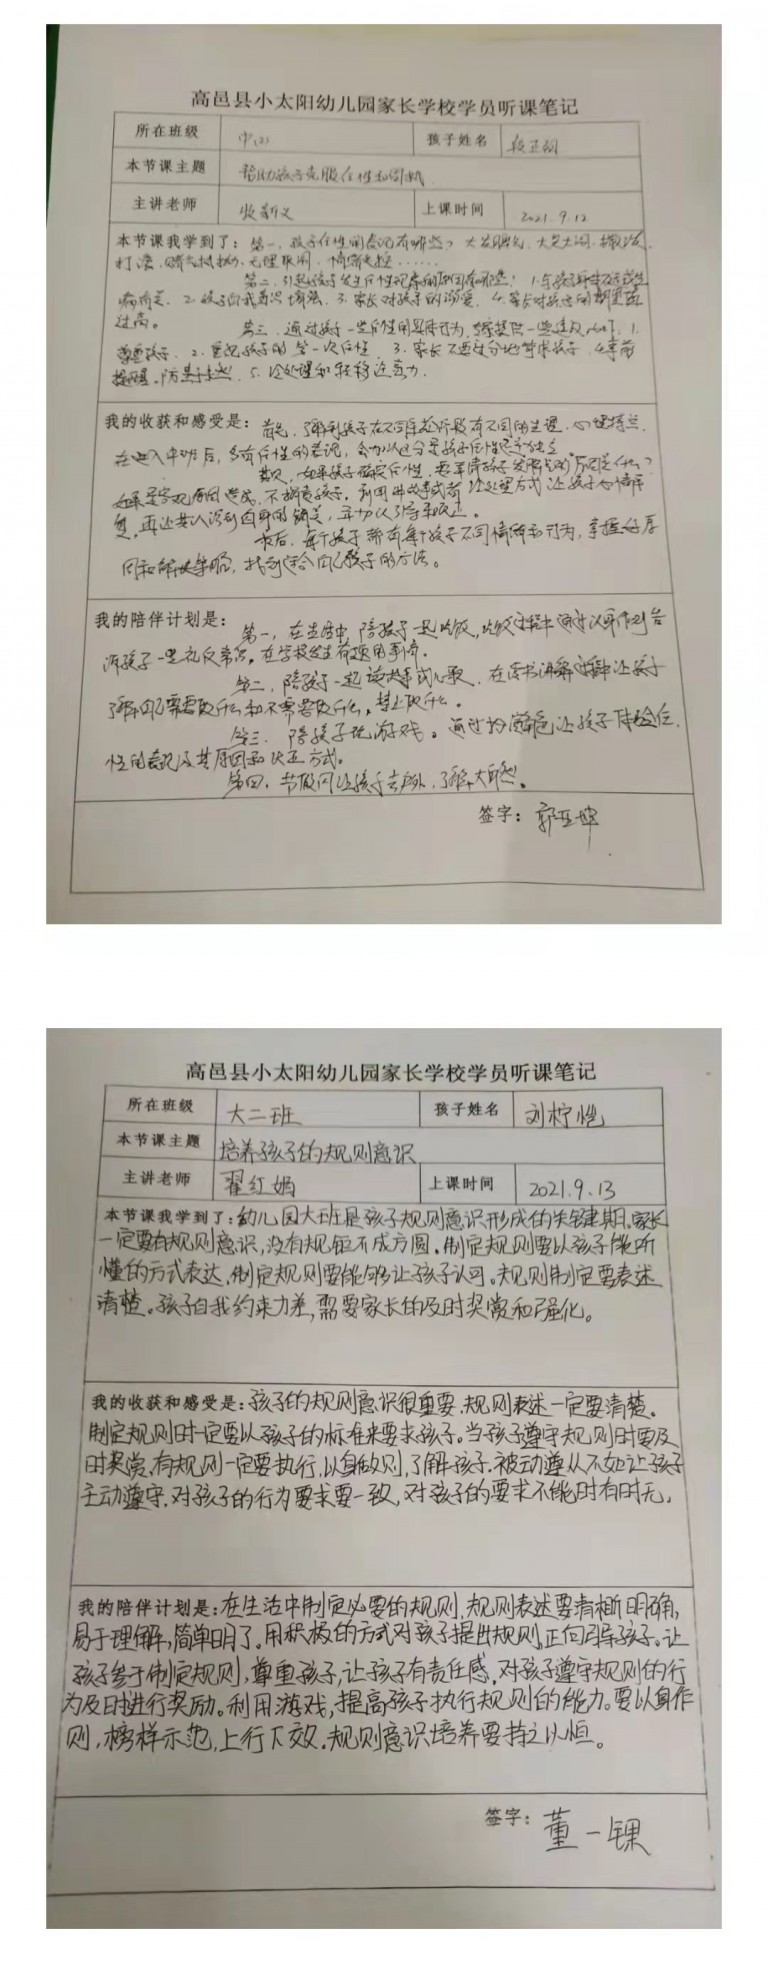 高邑县小太阳幼儿园家长学校学员听课笔记
所在班级 中(2) 孩子姓名
本节课主题 帮助孩子克服任性和固执
主讲老师 上课时间 2021.9.12
本节课我学到了：第一，孩子任性的表现有哪些？大发脾气、大哭大闹、撒泼
打滚、赌气执拗、无理取闹、情绪失控……
第二，引起孩子发生任性现象的原因有哪些：1.与孩子
有关。2.孩子自我意识增强。3.家长对孩子的溺爱。4.家长对孩子的期望值
过高。 第三，通过孩子一些任性的具体行为，1.
尊重孩子。2.重视孩子的第一次任性。3.家长不要过分地苛求孩子。4.事前
提醒，防患于未然。5.冷处理和转移注意力。
我的收获和感受是：首先，了解到孩子在不同年龄阶段有不同的生理、心理特点。
在进入中班后，多有任性的表现，
其次，如果孩子确实任性，要弄清孩子发脾气的原因是什么？
如果是客观原因造成，不指责孩子，利用讲故事或者冷处理方式让孩子心情平
复，再让其认识到自身的错误，并加以引导和改正。
最后，每个孩子都有每个孩子不同情绪和行为，掌握好原
因和解决策略，找到适合自己孩子的方法。
我的陪伴计划是：第一，在生活中，陪孩子一起吃饭，吃饭过程中通过以身作则告
诉孩子一些礼仪常识，在学校发生有趣的事情。
第二，陪孩子一起读故事或儿歌，在读书讲解过程中让孩子
了解自己需要做什么和不需要做什么，禁止做什么。
第三，陪孩子玩游戏。通过扮演角色让孩子体验任
性的表现及其原因和改正方式。
第四，节假闲让孩子去户外，了解大自然。
签字：郭亚坤
高邑县小太阳幼儿园家长学校学员听课笔记
所在班级 大二班 孩子姓名 刘柠恺
本节课主题 培养孩子的规则意识
主讲老师 翟红娟 上课时间 2021.9.13
本节课我学到了：幼儿园大班是孩子规则意识形成的关键期。家长
一定要有规则意识，没有规矩不成方圆。制定规则要以孩子能听
懂的方式表达，制定规则要能够让孩子认可。规则制定要表述
清楚。孩子自我约束力差，需要家长的及时奖赏和强化。
我的收获和感受是：孩子的规则意识很重要，规则表述一定要清楚。
制定规则时一定要以孩子的标准来要求孩子。当孩子遵守规则时要及
时奖赏，有规则一定要执行，以身做则，了解孩子，被动遵从不如让孩子
主动遵守，对孩子的行为要求要一致，对孩子的要求不能时有时无。
我的陪伴计划是：在生活中制定必要的规则，规则表述要清晰明确，
易于理解，简单明了。用积极的方式对孩子提出规则，正向引导孩子。让
孩子参于制定规则，尊重孩子，让孩子有责任感，对孩子遵守规则的行
为及时进行奖励。利用游戏，提高孩子执行规则的能力。要以身作
则，榜样示范，上行下效。规则意识培养要持之以恒。
签字：董一锞